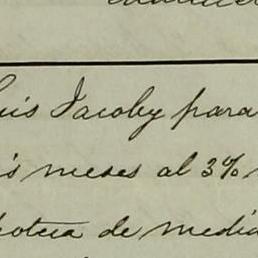 uis Jacoby para
is meses al 3%
poteca de media